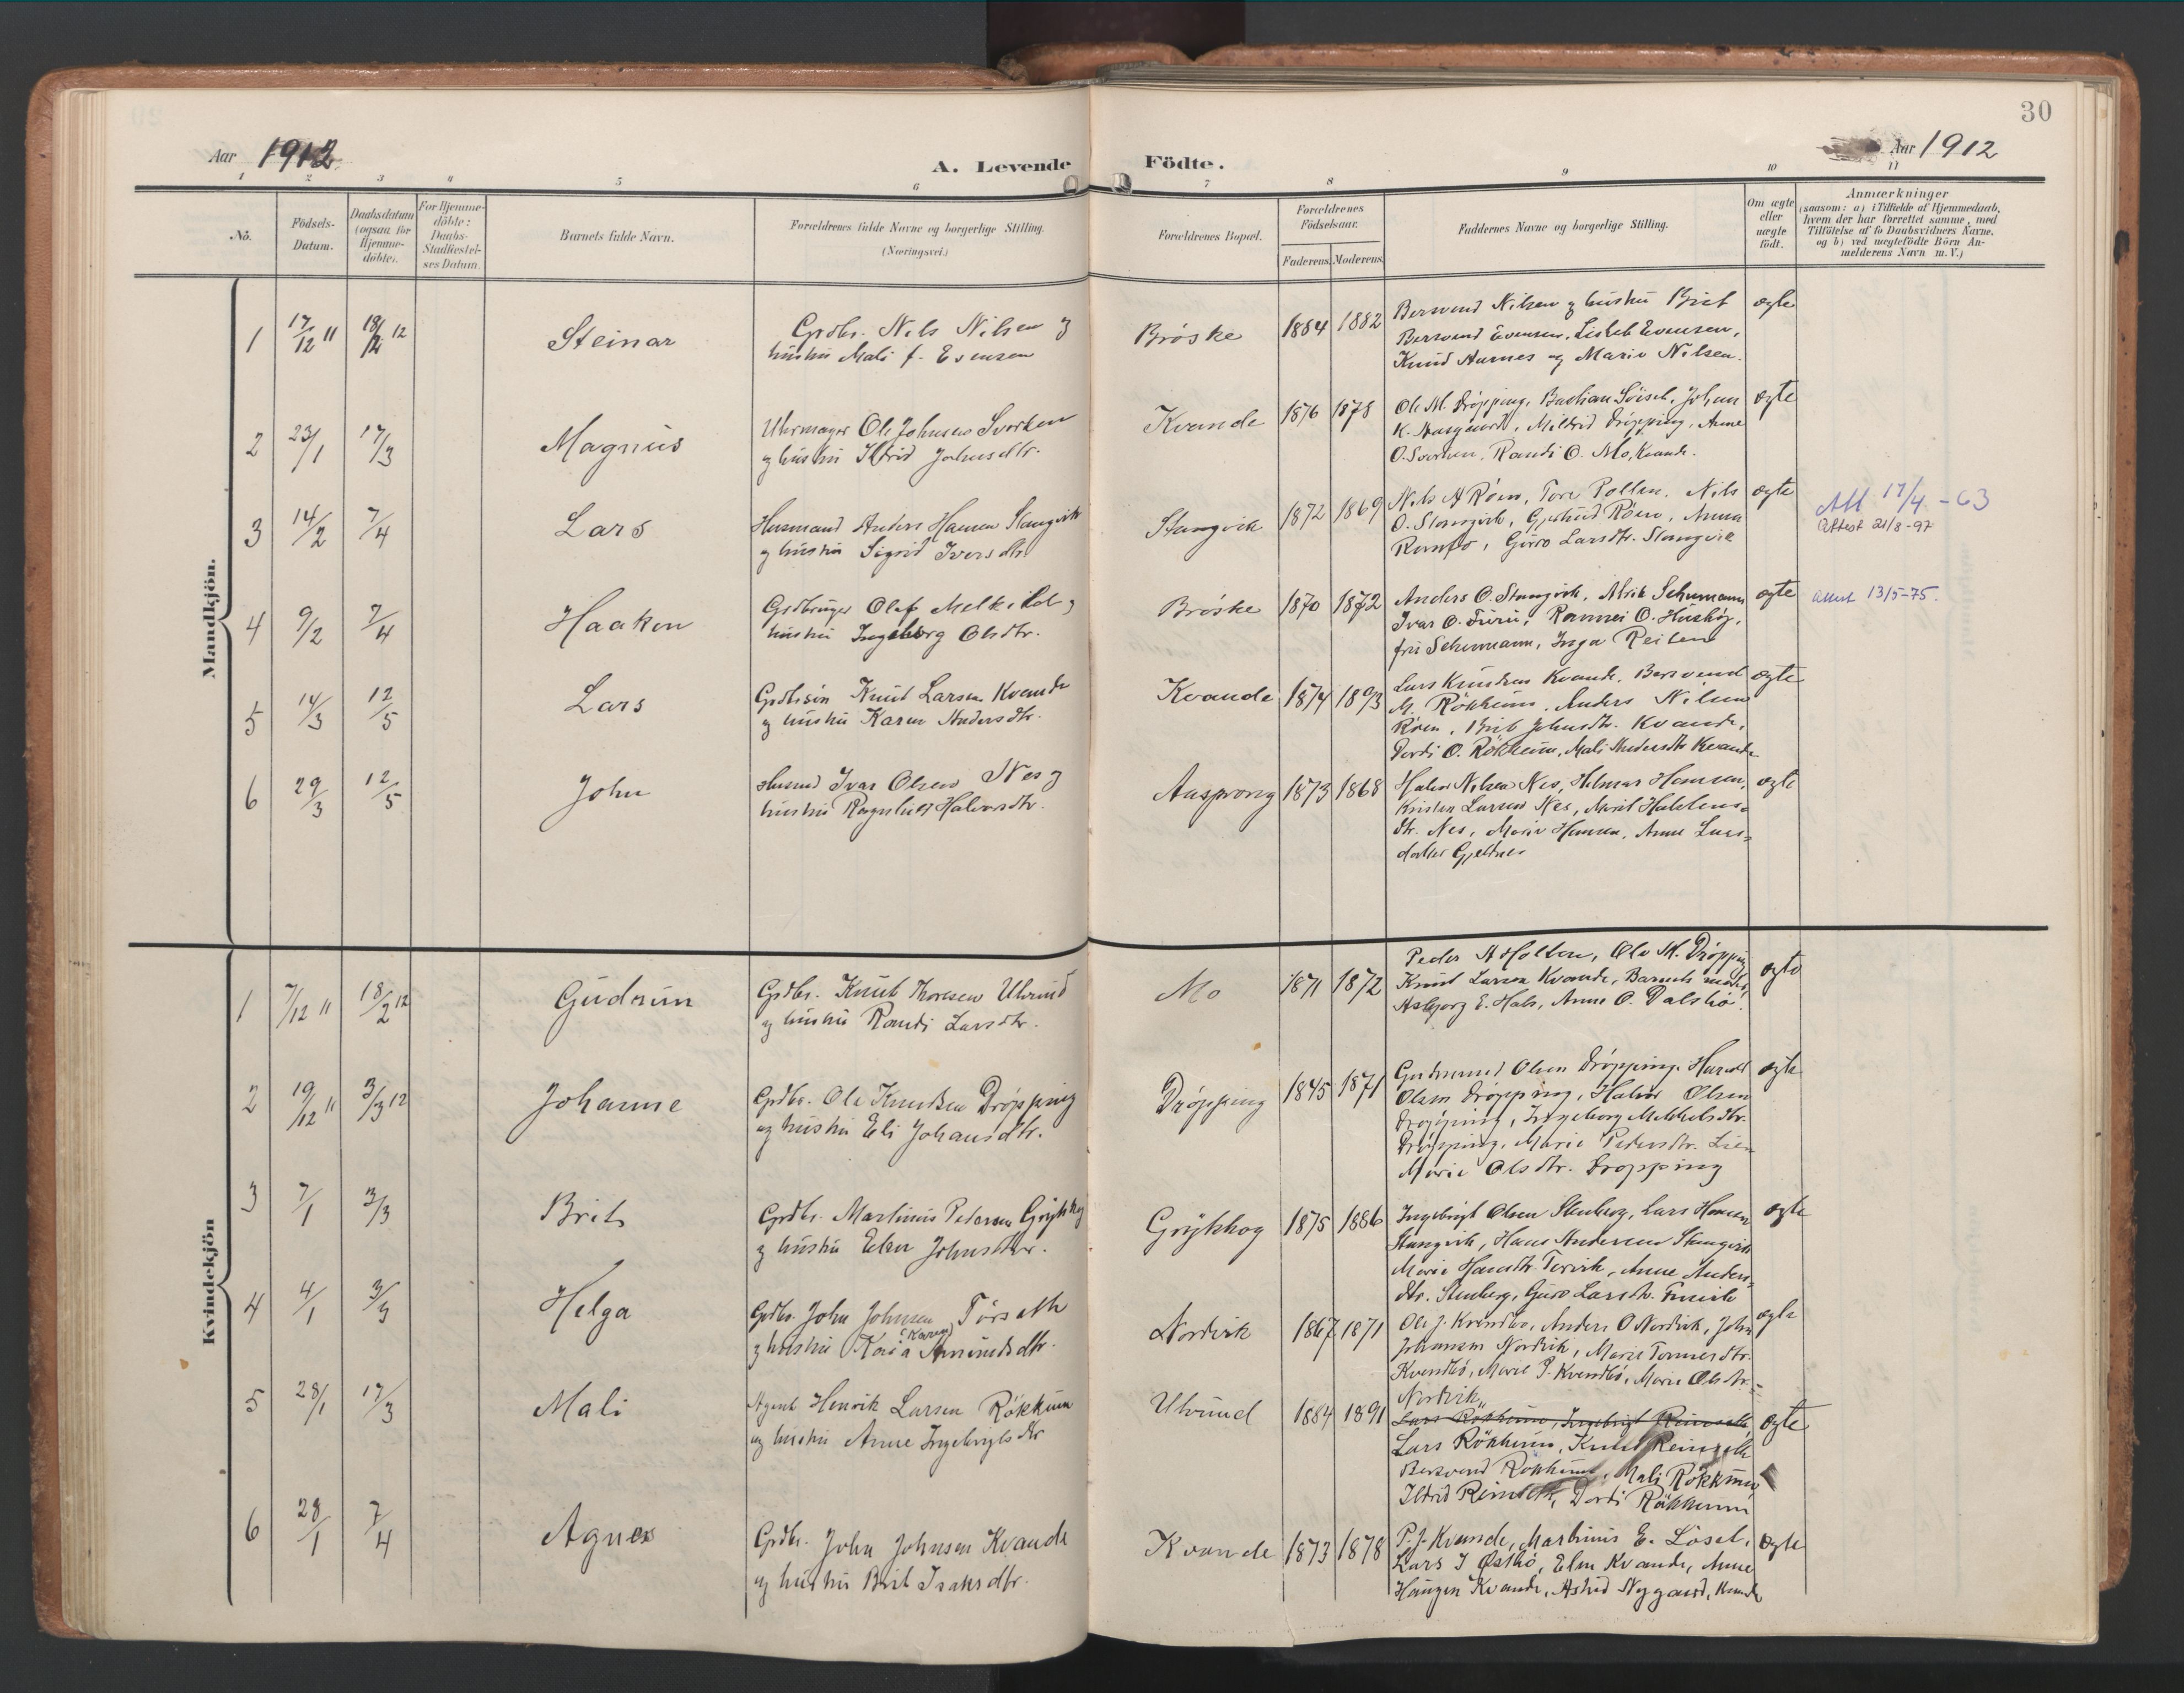 30
Aar 1912
A. Levende Födte.
Aar 1912
1 2 3 4 5 6 7 8 9 10 11
No.
Födsels-
Datum.
Daabsdatum
(ogsaa for
Hjemme-
döbte).
For Hjemme-
döbte:
Daabs-
Stadfæstel-
ses Datum.
Barnets fulde Navn.
Forældrenes fulde Navne og borgerlige Stilling.
(Næringsvei.)
Forældrenes Bopæl.
Forældrenes
Födselsaar.
Faderens. Moderens.
Faddernes Navne og borgerlige Stilling.
Om ægte
eller
uægte
födt.
Anmærkninger
(saasom: a) i Tilfælde af Hjemmedaab,
hvem der har forrettet samme, med
Tilföielse af to Daabsvidners Navne,
og b) ved uægtefödte Börn An-
melderens Navn m. V.)
Mandkjön.
1 17/12 11 18/2 12 Steinar
Grdbr. Nils Nilsen og
hustru Mali f. Evensen
Bröske 1884 1882
Bersvend Nilsen og hustru Brit
Bersvend Evensen, Lisbet Evensen,
Knud Aurnes og Marie Nilsen.
ægte
2 23/1 17/3 Magnus
Uhrmager Ole Johnsen Svorken
og hustru Ildrid Johnsdtr.
Kvande 1876 1878
Ole M. Dröpping, Bastian Löiset, Johan
K. Aasgaard, Mildrid Dröpping, Anne
O. Svorken, Randi O. Mo, Kvande.
ægte
3 14/2 7/4 Lars
Husmand Anders Hansen Stangvik
og hustru Sigrid Iversdtr.
Stangvik 1872 1869
Nils A Röen, Tore Pollen, Nils
O. Stangvik, Gjertrud Röen, Anna
Romfo, Guro Larsdtr. Stangvik
ægte
Att 17/4 - 63
Attest 21/8-97
4 9/2 7/4 Haakon
Grdbruger Olaf Melkild og
hustru Ingeborg Olsdtr.
Bröske 1870 1872
Anders O. Stangvik, Alrik Schumann
Ivar O. Furu, Rannei O. Husköy,
fru Schumann, Inga Reiten
ægte
Attest 13/5-75.
5 14/3 12/5 Lars
Grdbrsön Knut Larsen Kvande
og hustru Karen Andersdtr.
Kvande 1874 1893
Lars Knudsen Kvande, Bersvend
M. Rökkum, Anders Nilsen
Röen, Brit Johnsdtr. Kvande,
Dordi O. Rökkum, Mali Andersdtr Kvande
ægte
6 29/3 12/5 John
Husmd Ivar Olsen Nes og
hustru Ragnhild Halvorsdtr.
Aasprong 1873 1868
Halvor Nilsen Nes, Hilmar Hansen,
Kristen Larsen Nes, Marit Halvors-
dtr. Nes, Marie Hansen, Anne Lars-
datter Gjeldnes
ægte
Kvindekjön
1 7/12 11 18/2 12 Gudrun
Grdbr. Knut Thoresen Ulvund
og hustru Randi Larsdtr.
Mo 1871 1872
Peder A Holten, Ole M. Dröpping
Knut Larsen Kvande, Barnets moder,
Asbjörg E. Hals, Anne O. Dalsbö.
ægte
2 19/12 11 3/3 12 Johanne
Grdbr. Ole Knudsen Dröpping
og hustru Eli Johansdtr.
Dröpping 1845 1871
Gudmund Olsen Dröpping, Harald
Olsen Dröpping, Halvor Olsen
Dröpping, Ingeborg Mikkelsdtr.
Dröpping, Marie Pedersdtr. Lien
Marie Olsdtr. Dröpping
ægte
3 7/1 3/3 Brit
Grdbr. Martinus Pedersen Gröjthög
og hustru Elen Johnsdtr.
Gröjthog 1875 1886
Ingebrigt Olsen Stenberg, Lars Hansen
Stangvik, Hans Andersen Stangvik
Marie Hansdtr. Torvik, Anne Anders-
dtr. Stenberg, Guro Larsdtr.
ægte
4 4/1 3/3 Helga
Grdbr. John Johnsen Torseth
og hustru Kaia (Karen) Amundsdtr.
Nordvik 1867 1871
Ole J. Kvendbö, Anders O Nordvik, John
Johansen Nordvik, Marie Tommesdtr.
Kvendbö, Marie P. Kvendbö, Marie Olsdtr.
Nordvik
ægte
5 28/1 17/3 Mali
Agent Henrik Larsen Rökkum
og hustru Anne Ingebrigtsdtr
Ulvund 1884 1891
Lars Rökkum, Ingebrigt Reinseth
Lars Rökkum, Knut Reinseth
Bersvend Rökkum, Mali Rökkum
Ildrid Reinseth, Dordi Rökkum
ægte
6 28/1 7/4 Agnes
Grdbr. John Johnsen Kvande
og hustru Brit Isaksdtr.
Kvande 1873 1878
P. J. Kvande, Martinus E. Löset,
Lars I Östbö, Elen Kvande, Anne
Haugen Kvande, Astrid Nygaard, Kvande
ægte